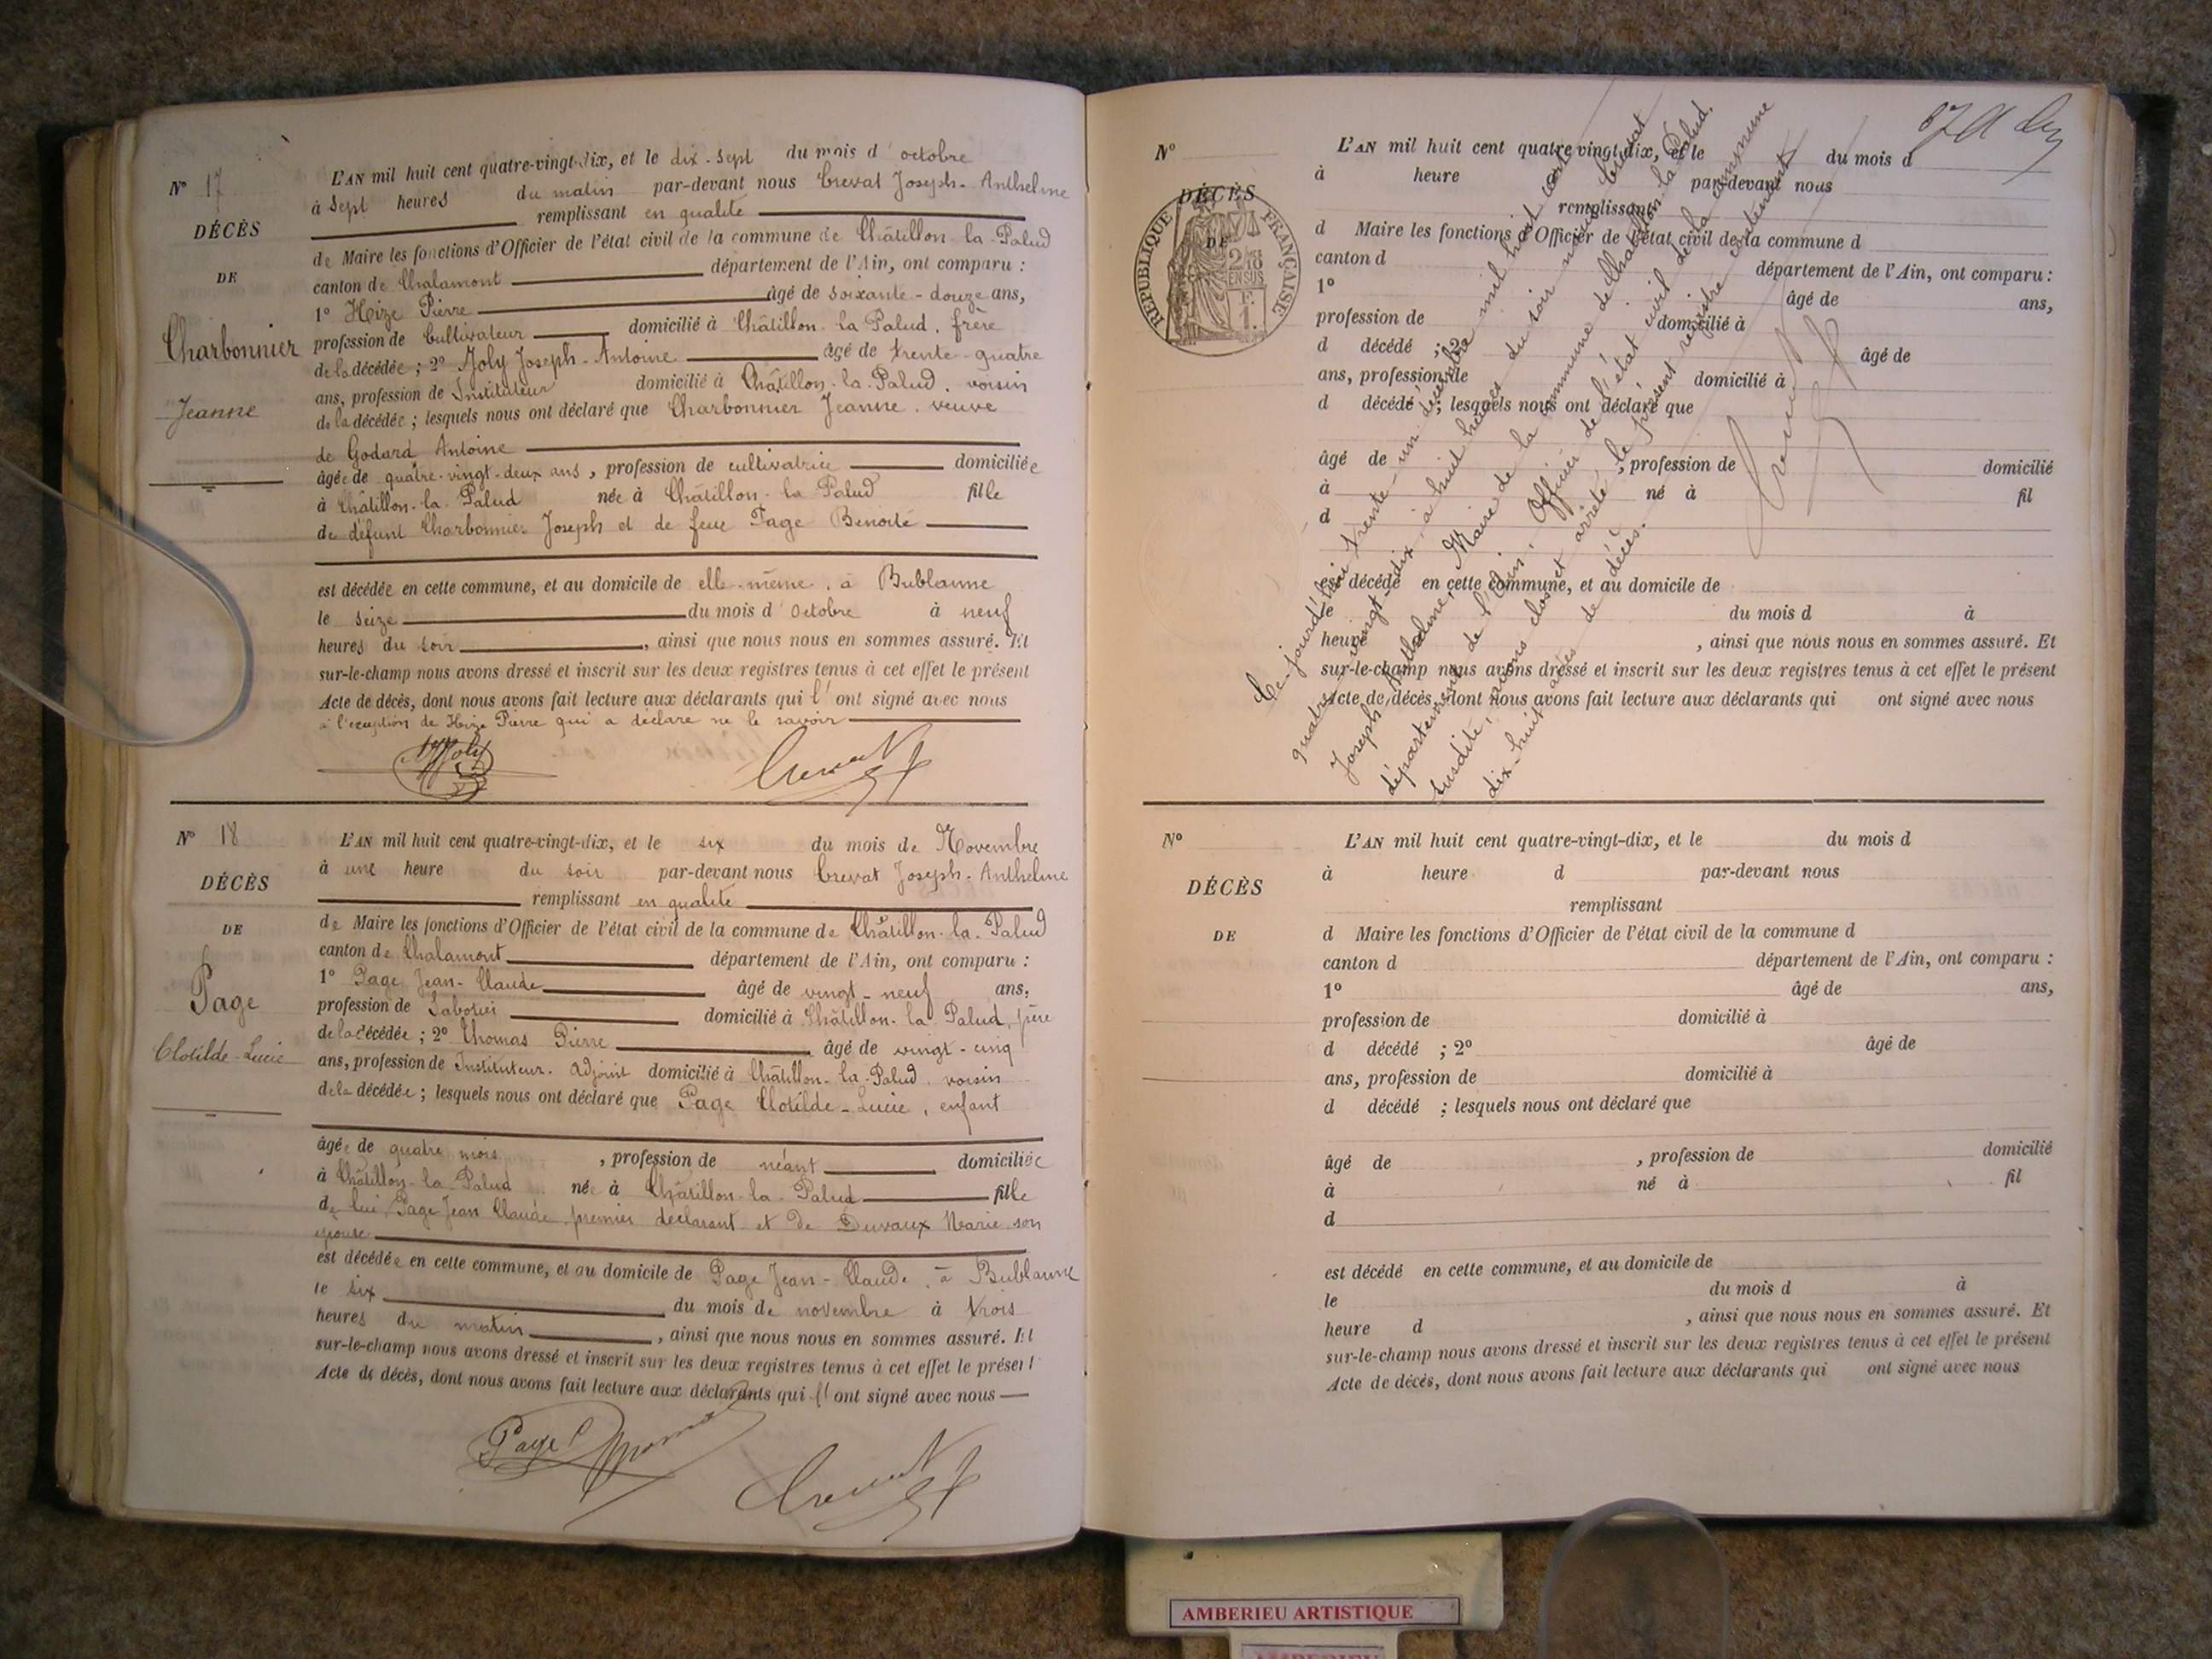 N° 17
DÉCÈS
DE
Charbonnier
Jeanne
L'AN mil huit cent quatre-vingt-dix, et le dix-sept du mois d'octobre
à sept heures du matin par-devant nous Crevat Joseph-Anthelme
remplissant en qualité
de Maire les fonctions d'Officier de l'état civil de la commune de Châtillon-la-Palud
canton de Chalamont département de l'Ain, ont comparu :
1° Heize Pierre âgé de soixante-douze ans,
profession de Cultivateur domicilié à Châtillon-la-Palud, frère
de la décédée ; 2° Joly Joseph-Antoine âgé de trente-quatre
ans, profession de Instituteur domicilié à Châtillon-la-Palud, voisin
de la décédée ; lesquels nous ont déclaré que Charbonnier Jeanne, veuve
de Godard Antoine
âgée de quatre-vingt-deux ans, profession de cultivatrice domiciliée
à Châtillon-la-Palud née à Châtillon-la-Palud fille
de défunt Charbonnier Joseph et de feue Page Benoite
est décédée en cette commune, et au domicile de elle-même, à Bublanne
le seize du mois d'octobre à neuf
heures du soir, ainsi que nous nous en sommes assuré. Et
sur-le-champ nous avons dressé et inscrit sur les deux registres tenus à cet effet le présent
Acte de décès, dont nous avons fait lecture aux déclarants qui l'ont signé avec nous
à l'exception de Heize Pierre qui a déclaré ne le savoir
Joly Crevat
N° 18
DÉCÈS
DE
Page
Clotilde-Lucie
L'AN mil huit cent quatre-vingt-dix, et le six du mois de Novembre
à une heure du soir par-devant nous Crevat Joseph-Anthelme
remplissant en qualité
de Maire les fonctions d'Officier de l'état civil de la commune de Châtillon-la-Palud
canton de Chalamont département de l'Ain, ont comparu :
1° Page Jean-Claude âgé de vingt-neuf ans,
profession de Sabotier domicilié à Châtillon-la-Palud, père
de la décédée ; 2° Thomas Pierre âgé de vingt-cinq
ans, profession de Instituteur-adjoint domicilié à Châtillon-la-Palud, voisin
de la décédée ; lesquels nous ont déclaré que Page Clotilde-Lucie, enfant
âgée de quatre mois, profession de néant domiciliée
à Châtillon-la-Palud née à Châtillon-la-Palud fille
de lui, Page Jean Claude, premier déclarant et de Duvaux Marie son
épouse
est décédée en cette commune, et au domicile de Page Jean-Claude, à Bublanne
le six du mois de novembre à trois
heures du matin, ainsi que nous nous en sommes assuré. Et
sur-le-champ nous avons dressé et inscrit sur les deux registres tenus à cet effet le présent
Acte de décès, dont nous avons fait lecture aux déclarants qui l'ont signé avec nous
Page Thomas
Crevat
N°
DÉCÈS
DE
RÉPUBLIQUE FRANÇAISE
2/10 EN SUS
F.
1.
L'AN mil huit cent quatre-vingt-dix, et le du mois d
à heure par-devant nous
remplissant
d Maire les fonctions d'Officier de l'état civil de la commune d
canton d département de l'Ain, ont comparu :
1° âgé de ans,
profession de domicilié à
d décédé ; 2° âgé de
ans, profession de domicilié à
d décédé ; lesquels nous ont déclaré que
âgé de , profession de domicilié
à né à fil
d
est décédé en cette commune, et au domicile de
le du mois d à
heure , ainsi que nous nous en sommes assuré. Et
sur-le-champ nous avons dressé et inscrit sur les deux registres tenus à cet effet le présent
Acte de décès, dont nous avons fait lecture aux déclarants qui ont signé avec nous
Ce jourd'hui trente-un décembre mil huit cent
quatre-vingt-dix, à huit heures du soir nous Crevat
Joseph Anthelme, Maire de la commune de Châtillon-la-Palud.
département de l'Ain, Officier de l'état civil de la commune
susdite, avons clos et arrêté le présent registre contenant
dix-huit actes de décès.
Crevat
N°
DÉCÈS
DE
L'AN mil huit cent quatre-vingt-dix, et le du mois d
à heure d par-devant nous
remplissant
d Maire les fonctions d'Officier de l'état civil de la commune d
canton d département de l'Ain, ont comparu :
1° âgé de ans,
profession de domicilié à
d décédé ; 2° âgé de
ans, profession de domicilié à
d décédé ; lesquels nous ont déclaré que
âgé de , profession de domicilié
à né à fil
d
est décédé en cette commune, et au domicile de
le du mois d à
heure d , ainsi que nous nous en sommes assuré. Et
sur-le-champ nous avons dressé et inscrit sur les deux registres tenus à cet effet le présent
Acte de décès, dont nous avons fait lecture aux déclarants qui ont signé avec nous
AMBERIEU ARTISTIQUE
AMBERIEU